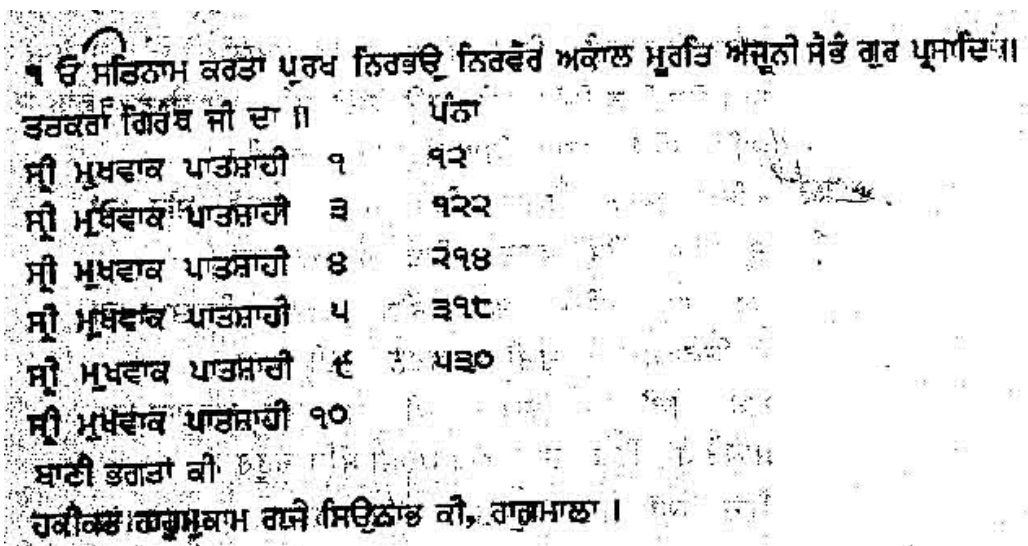 ੧ ਓ ਸਤਿਨਾਮ ਕਰਤਾ ਪੁਰਖ ਨਿਰਭਉ ਨਿਰਵੈਰ ਅਕਾਲ ਮੂਰਤਿ ਅਜੂਨੀ ਸੈਭੰ ਗੁਰ ਪ੍ਰਸਾਦਿ ॥
ਤਤਕਰਾ ਗਿਰੰਥ ਜੀ ਦਾ ॥ ਪੰਨਾ
ਸ੍ਰੀ ਮੁਖਵਾਕ ਪਾਤਸ਼ਾਹੀ ੧ ੧੨
ਸ੍ਰੀ ਮੁਖਵਾਕ ਪਾਤਸ਼ਾਹੀ ੩ ੧੨੨
ਸ੍ਰੀ ਮੁਖਵਾਕ ਪਾਤਸ਼ਾਹੀ ੪ ੨੧੪
ਸ੍ਰੀ ਮੁਖਵਾਕ ਪਾਤਸ਼ਾਹੀ ੫ ੩੧੮
ਸ੍ਰੀ ਮੁਖਵਾਕ ਪਾਤਸ਼ਾਹੀ ੯ ੫੩੦
ਸ੍ਰੀ ਮੁਖਵਾਕ ਪਾਤਸ਼ਾਹੀ ੧੦
ਬਾਣੀ ਭਗਤਾਂ ਕੀ
ਹਕੀਕਤ ਰਾਹੁਮੁਕਾਮ ਰਾਜੇ ਸਿਉਨਾਭ ਕੀ, ਰਾਗਮਾਲਾ ।